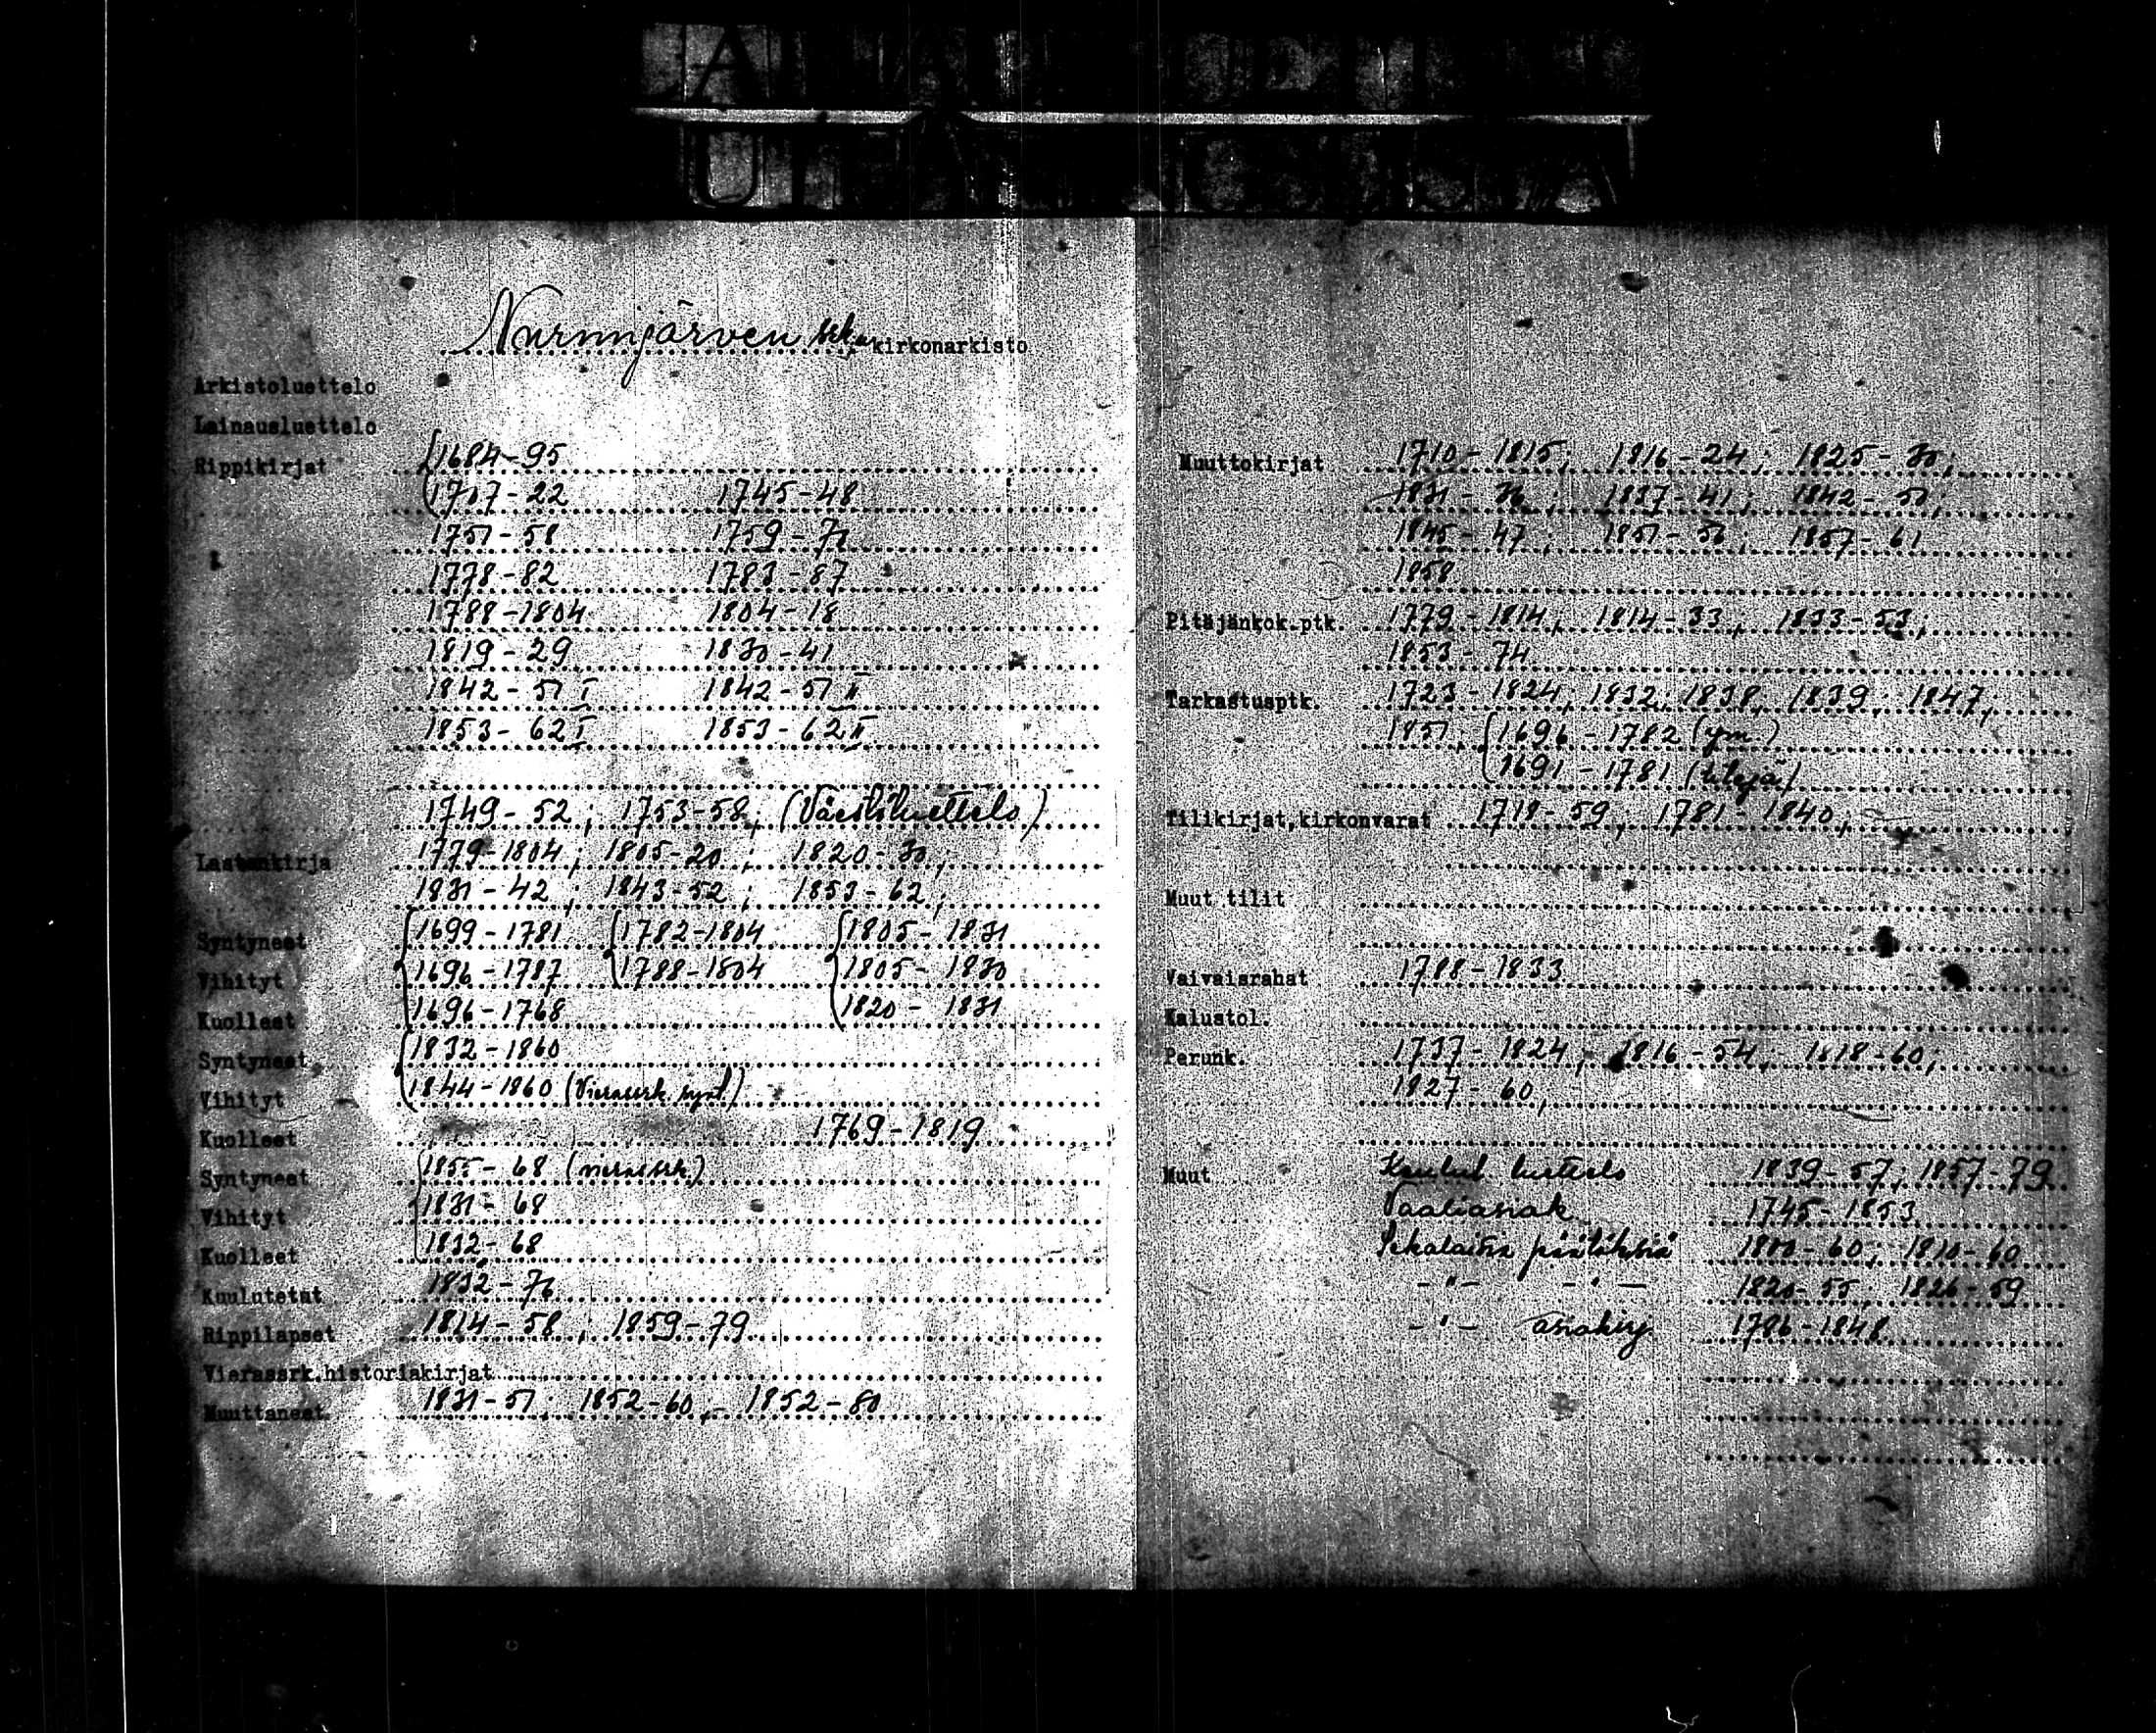 Nurmijärven srk:n kirkonarkisto
Arkistoluettelo
Lainausluettelo
Rippikirjat 1684-95
1707-22 1745-48
1751-58 1759-71
1778-82 1783-87
1788-1804 1804-18
1819-29 1830-41
1842-51 I 1842-51 II
1853-62 I 1853-62 II
1749-52; 1753-58; (Väestöluettelo)
Lastenkirja 1779-1804; 1805-20; 1820-30;
1831-42; 1843-52; 1853-62;
Syntyneet 1699-1781 1782-1804 1805-1831
Vihityt 1696-1787 1788-1804 1805-1830
Kuolleet 1696-1768 1820-1831
Syntyneet 1832-1860
Vihityt 1844-1860 (Vierassrk. synt.)
Kuolleet 1769-1819
Syntyneet 1855-68 (vierassrk.)
Vihityt 1831-68
Kuolleet 1832-68
Kuulutetut 1832-76
Rippilapset 1814-58; 1859-79
Vierassrk.historiakirjat
Muuttaneet 1831-51; 1852-60, 1852-80
Muuttokirjat 1710-1815; 1816-24; 1825-30;
1831-36; 1837-41; 1842-51;
1845-47; 1851-56; 1857-61
1858
Pitäjänkok.ptk. 1779-1814; 1814-33; 1833-53;
1853-74
Tarkastusptk. 1723-1824; 1832; 1838; 1839; 1847;
1851; 1696-1782 (ym.)
1691-1781 (tilejä)
Tilikirjat,kirkonvarat 1718-59; 1781-1840;
Muut tilit
Vaivaisrahat 1788-1833
Kalustol.
Perunk. 1737-1824; 1816-54; 1818-60;
1827-60,
Muut Kuulut. luettelo 1839-57; 1857-79
Vaaliasiak. 1745-1853
Sekalaisia päätöksiä 1800-60; 1810-60
-"- -"- 1820-55; 1826-59
-"- asiakirj. 1786-1848